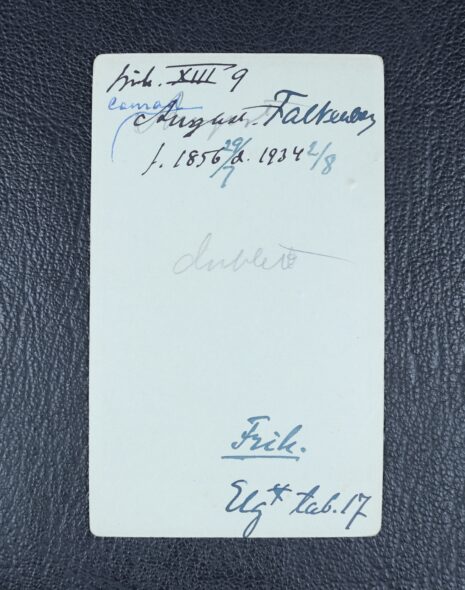 frih. XIII 9
Conrad
August Falkenberg
f. 1856 29/7 d. 1934 2/8
dublett
Frih.
Elg tab. 17